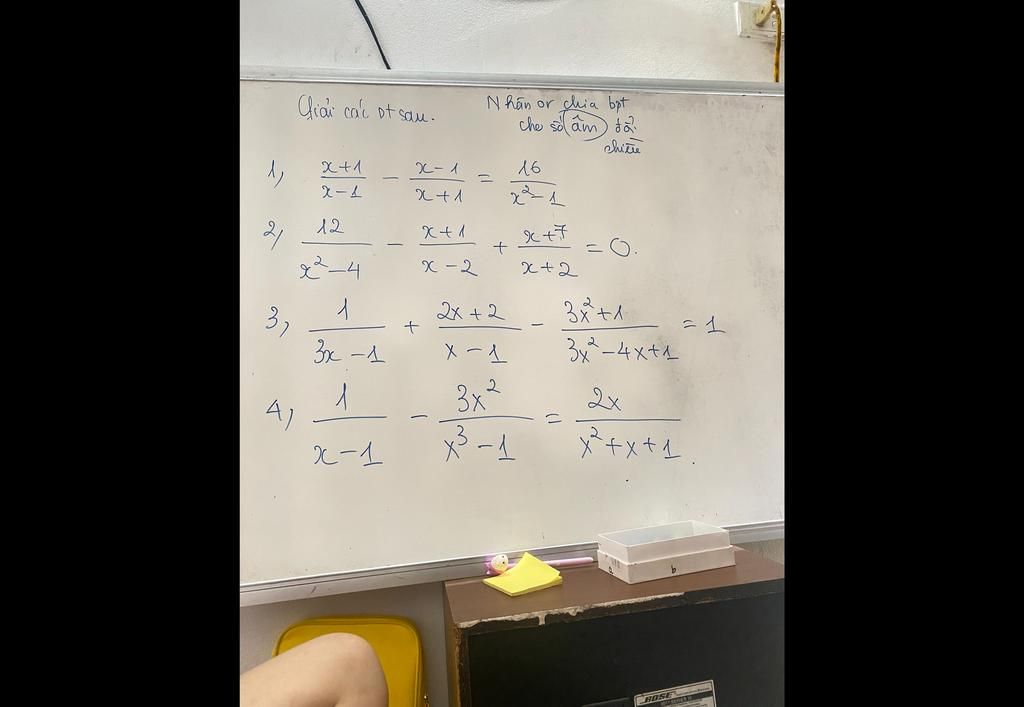 Giải các pt sau.
Nhân or chia bpt
cho số âm đổi
chiều
1, \frac{x+1}{x-1} - \frac{x-1}{x+1} = \frac{16}{x^2-1}
2, \frac{12}{x^2-4} - \frac{x+1}{x-2} + \frac{x+7}{x+2} = 0.
3, \frac{1}{3x-1} + \frac{2x+2}{x-1} - \frac{3x^2+1}{3x^2-4x+1} = 1
4, \frac{1}{x-1} - \frac{3x^2}{x^3-1} = \frac{2x}{x^2+x+1}.
b
BOSE